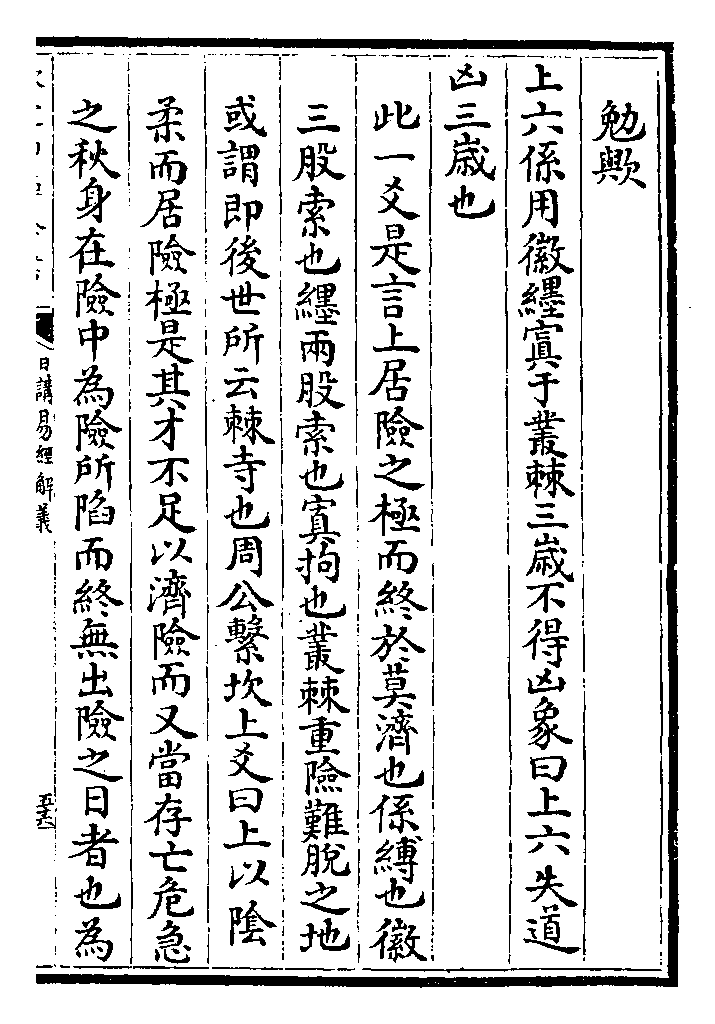 勉歟
上六係用徽纆寘于叢棘三歳不得凶象曰上六失道
凶三歳也
此一爻是言上居險之極而終於莫濟也係縛也徽
三股索也纆兩股索也寘拘也叢棘重險難脫之地
或謂即後世所云棘寺也周公繫坎上爻曰上以陰
柔而居險極是其才不足以濟險而又當存亡危急
之秋身在險中為險所陷而終無出險之日者也為
日講易經解義